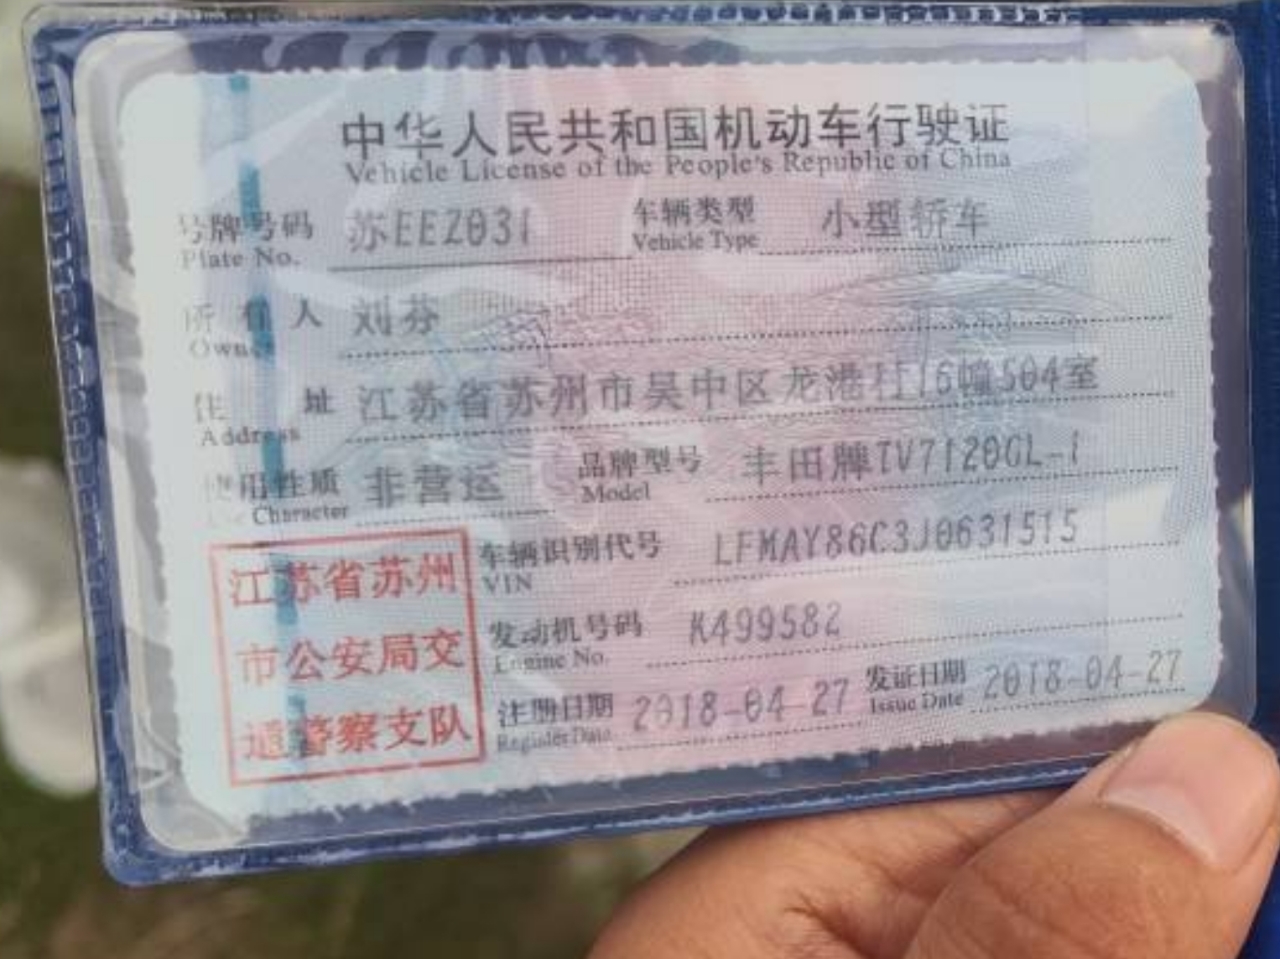 中华人民共和国机动车行驶证
Vehicle License of the People's Republic of China
号牌号码 苏EEZ031 车辆类型 小型轿车
Plate No. Vehicle Type
所有人 刘芬
Owner
住址 江苏省苏州市吴中区龙港社16幢504室
Address
使用性质 非营运 品牌型号 丰田牌TV7120GL-i
Character Model
车辆识别代号 LFMAY86C3J0631515
VIN
发动机号码 K499582
Engine No.
注册日期 2018-04-27 发证日期 2018-04-27
Register Date Issue Date
江苏省苏州
市公安局交
通警察支队